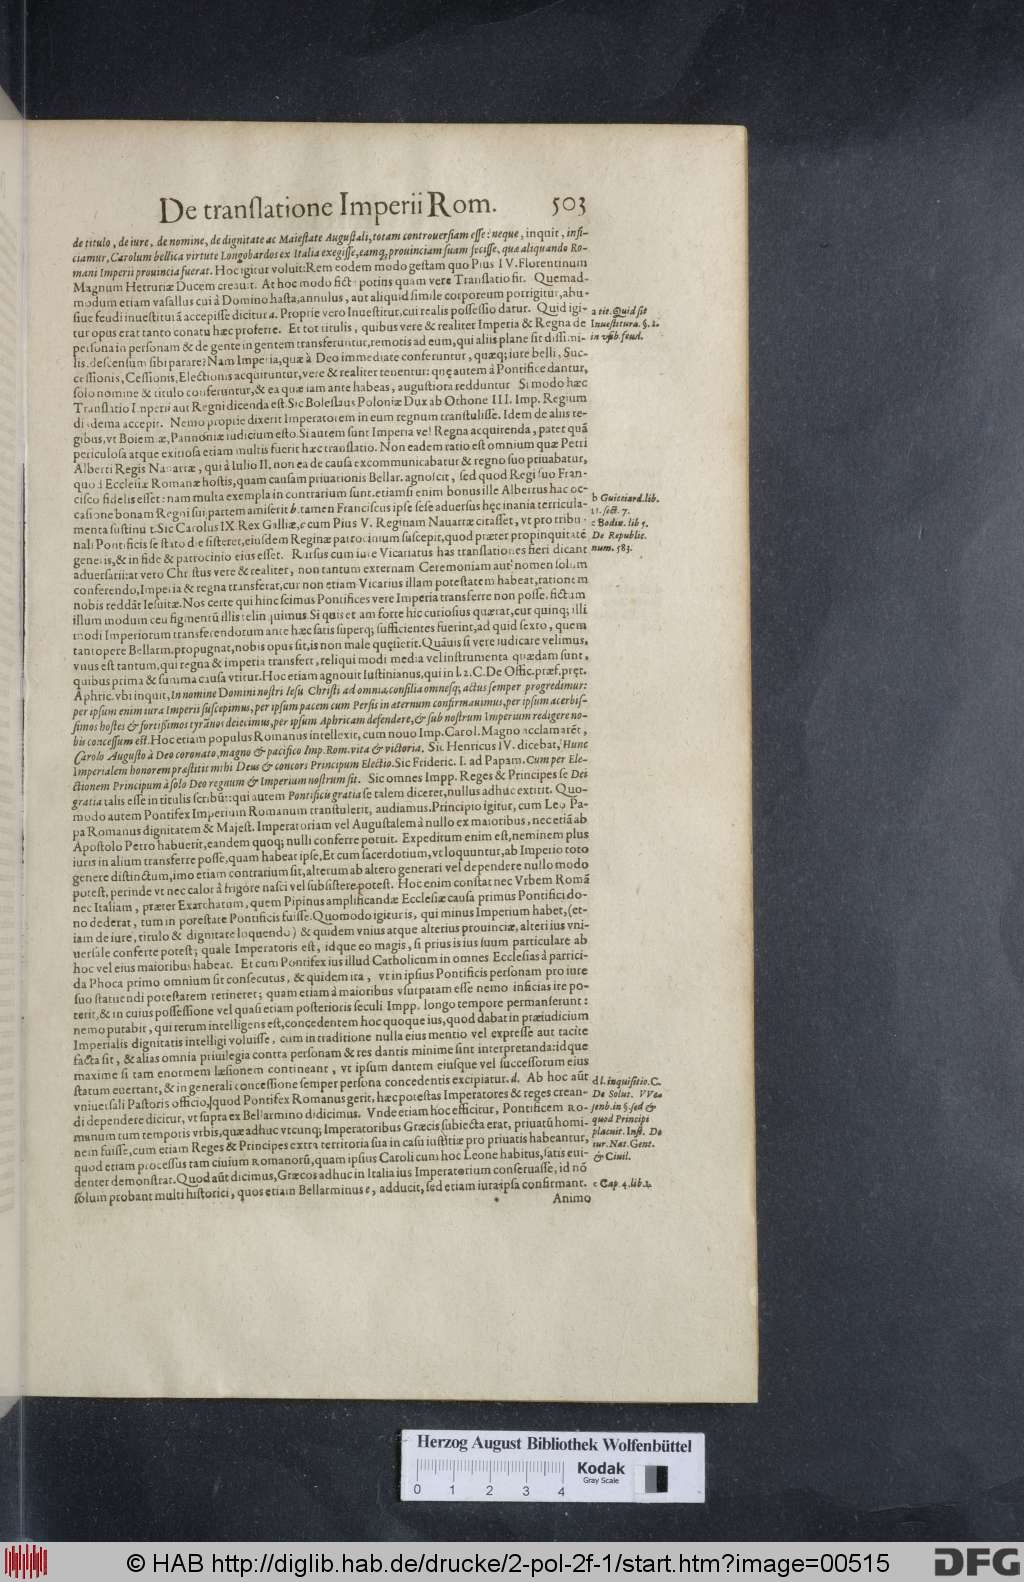 De translatione Imperii Rom. 503
de titulo, de iure, de nomine, de dignitate ac Maiestate Augustali, totam controuersiam esse: neque, inquit, infi-
ciamur, Carolum bellica virtute Longobardos ex Italia exegisse, eamq; prouinciam suam fecisse, quæ aliquando Ro-
mani Imperii prouincia fuerat. Hoc igitur voluit: Rem eodem modo gestam quo Pius IV. Florentinum
Magnum Hetruriæ Ducem creauit. At hoc modo ficta potius quam vere Translatio fit. Quemad-
modum etiam vasallus cui à Domino hasta, annulus, aut aliquid simile corporeum porrigitur, abu-
siue feudi inuestiturã accepisse dicitur a. Proprie vero Inuestitur, cui realis possessio datur. Quid igi-
tur opus erat tanto conatu hæc proferre. Et tot titulis, quibus vere & realiter Imperia & Regna de
persona in personam & de gente in gentem transferuntur, remotis ad eum, qui aliis plane sit dissimi-
lis, descensum sibi parare? Nam Imperia, quæ à Deo immediate conferuntur, quæq; iure belli, Suc-
cessionis, Cessionis, Electionis acquiruntur, vere & realiter tenentur: quę autem à Pontifice dantur,
solo nomine & titulo conferuntur, & ea quæ iam ante habeas, augustiora redduntur Si modo hæc
Translatio Imperii aut Regni dicenda est. Sic Boleslaus Poloniæ Dux ab Othone III. Imp. Regium
diadema accepit. Nemo proprie dixerit Imperatorem in eum regnum transtulisse. Idem de aliis re-
gibus, vt Boiemiæ, Pannoniæ iudicium esto. Si autem sunt Imperia vel Regna acquirenda, patet quã
periculosa atque exitiosa etiam multis fuerit hæc translatio. Non eadem ratio est omnium quæ Petri
Alberti Regis Nauarræ, qui à Iulio II. non ea de causa excommunicabatur & regno suo priuabatur,
quod Ecclesiæ Romanæ hostis, quam causam priuationis Bellar. agnoscit, sed quod Regi suo Fran-
cisco fidelis esset: nam multa exempla in contrarium sunt. etiamsi enim bonus ille Albertus hac oc-
casione bonam Regni sui partem amiserit b. tamen Franciscus ipse sese aduersus hęc inania terricula-
menta sustinuit. Sic Carolus IX. Rex Galliæ, c cum Pius V. Reginam Nauarræ citasset, vt pro tribu-
nali Pontificis se stato die sisteret, eiusdem Reginæ patrocinium suscepit, quod præter propinquitatẽ
generis, & in fide & patrocinio eius esset. Rursus cum iure Vicariatus has translationes fieri dicant
aduersarii: at vero Christus vere & realiter, non tantum externam Ceremoniam aut nomen solum
conferendo, Imperia & regna transferat, cur non etiam Vicarius illam potestatem habeat, rationem
nobis reddãt Iesuitæ. Nos certe qui hinc scimus Pontifices vere Imperia transferre non posse, fictam
illum modum ceu figmentũ illis relinquimus. Si quis etiam forte hic curiosius quærat, cur quinq; illi
modi Imperiorum transferendorum ante hæc satis superq; sufficientes fuerint, ad quid sexto, quem
tantopere Bellarm. propugnat, nobis opus sit, is non male quęsierit. Quãuis si vere iudicare velimus,
vnus est tantum, qui regna & imperia transfert, reliqui modi media vel instrumenta quædam sunt,
quibus prima & summa causa vtitur. Hoc etiam agnouit Iustinianus, qui in l. 2. C. De Offic. præf. pręt.
Aphric. vbi inquit, In nomine Domini nostri Iesu Christi ad omnia, consilia omnesq; actus semper progredimur:
per ipsum enim iura Imperii suscepimus, per ipsum pacem cum Persis in æternum confirmauimus, per ipsum acerbis-
simos hostes & fortissimos tyrãnos deiecimus, per ipsum Aphricam defendere, & sub nostrum Imperium redigere no-
bis concessum est. Hoc etiam populus Romanus intellexit, cum nouo Imp. Carol. Magno acclamarẽt,
Carolo Augusto à Deo coronato, magno & pacifico Imp. Rom. vita & victoria. Sic Henricus IV. dicebat, Hunc
Imperialem honorem præstitit mihi Deus & concors Principum Electio. Sic Frideric. I. ad Papam. Cum per Ele-
ctionem Principum à solo Deo regnum & Imperium nostrum sit. Sic omnes Impp. Reges & Principes se Dei
gratia tales esse in titulis scribũt: qui autem Pontificis gratia se talem diceret, nullus adhuc extitit. Quo-
modo autem Pontifex Imperium Romanum transtulerit, audiamus. Principio igitur, cum Leo Pa-
pa Romanus dignitatem & Majest. Imperatoriam vel Augustalem à nullo ex maioribus, nec etiã ab
Apostolo Petro habuerit, eandem quoq; nulli conferre potuit. Expeditum enim est, neminem plus
iuris in alium transferre posse, quam habeat ipse, Et cum sacerdotium, vt loquuntur, ab Imperio toto
genere distinctum, imo etiam contrarium sit, alterum ab altero generari vel dependere nullo modo
potest, perinde vt nec calor à frigore nasci vel subsistere potest. Hoc enim constat nec Vrbem Romã
nec Italiam, præter Exarchatum, quem Pipinus amplificandæ Ecclesiæ causa primus Pontifici do-
no dederat, tum in potestate Pontificis fuisse. Quomodo igitur is, qui minus Imperium habet, (et-
iam de iure, titulo & dignitate loquendo) & quidem vnius atque alterius prouinciæ, alteri ius vni-
uersale conferre potest; quale Imperatoris est, idque eo magis, si prius is ius suum particulare ab
hoc vel eius maioribus habeat. Et cum Pontifex ius illud Catholicum in omnes Ecclesias à parrici-
da Phoca primo omnium sit consecutus, & quidem ita, vt in ipsius Pontificis personam pro iure
suo statuendi potestatem retineret; quam etiam à maioribus vsurpatam esse nemo inficias ire po-
terit, & in cuius possessione vel quasi etiam posterioris seculi Impp. longo tempore permanserunt:
nemo putabit, qui rerum intelligens est, concedentem hoc quoque ius, quod dabat in præiudicium
Imperialis dignitatis intelligi voluisse, cum in traditione nulla eius mentio vel expresse aut tacite
facta sit, & alias omnia priuilegia contra personam & res dantis minime sint interpretanda: idque
maxime si tam enormem læsionem contineant, vt ipsum dantem eiusque vel successorum eius
statum euertant, & in generali concessione semper persona concedentis excipiatur. d. Ab hoc aũt
vniuersali Pastoris officio, quod Pontifex Romanus gerit, hæc potestas Imperatores & reges crean-
di dependere dicitur, vt supra ex Bellarmino didicimus. Vnde etiam hoc efficitur, Pontificem Ro-
manum tum temporis vrbis, quæ adhuc vtcunq; Imperatoribus Græcis subiecta erat, priuatũ homi-
nem fuisse, cum etiam Reges & Principes extra territoria sua in casu iustitiæ pro priuatis habeantur,
quod etiam processus tam ciuium Romanorũ, quam ipsius Caroli cum hoc Leone habitus, satis eui-
denter demonstrat. Quod aũt dicimus, Græcos adhuc in Italia ius Imperatorium conseruasse, id nõ
solum probant multi historici, quos etiam Bellarminus e, adducit, sed etiam iura ipsa confirmant.
Animo
a tit. Quid sit
Inuestitura. §. 1.
in vsib. feud.
b Guicciard. lib.
11. sect. 7.
c Bodin. lib 5.
De Republic.
num. 583.
d l. inquisitio. C.
De Solut. VVe-
senb. in §. sed &
quod Principi
placuit. Inst. De
iur. Nat. Gent.
& Ciuil.
e Cap. 4. lib. 2.
Herzog August Bibliothek Wolfenbüttel
Kodak
Gray Scale
0 1 2 3 4
© HAB http://diglib.hab.de/drucke/2-pol-2f-1/start.htm?image=00515
DFG